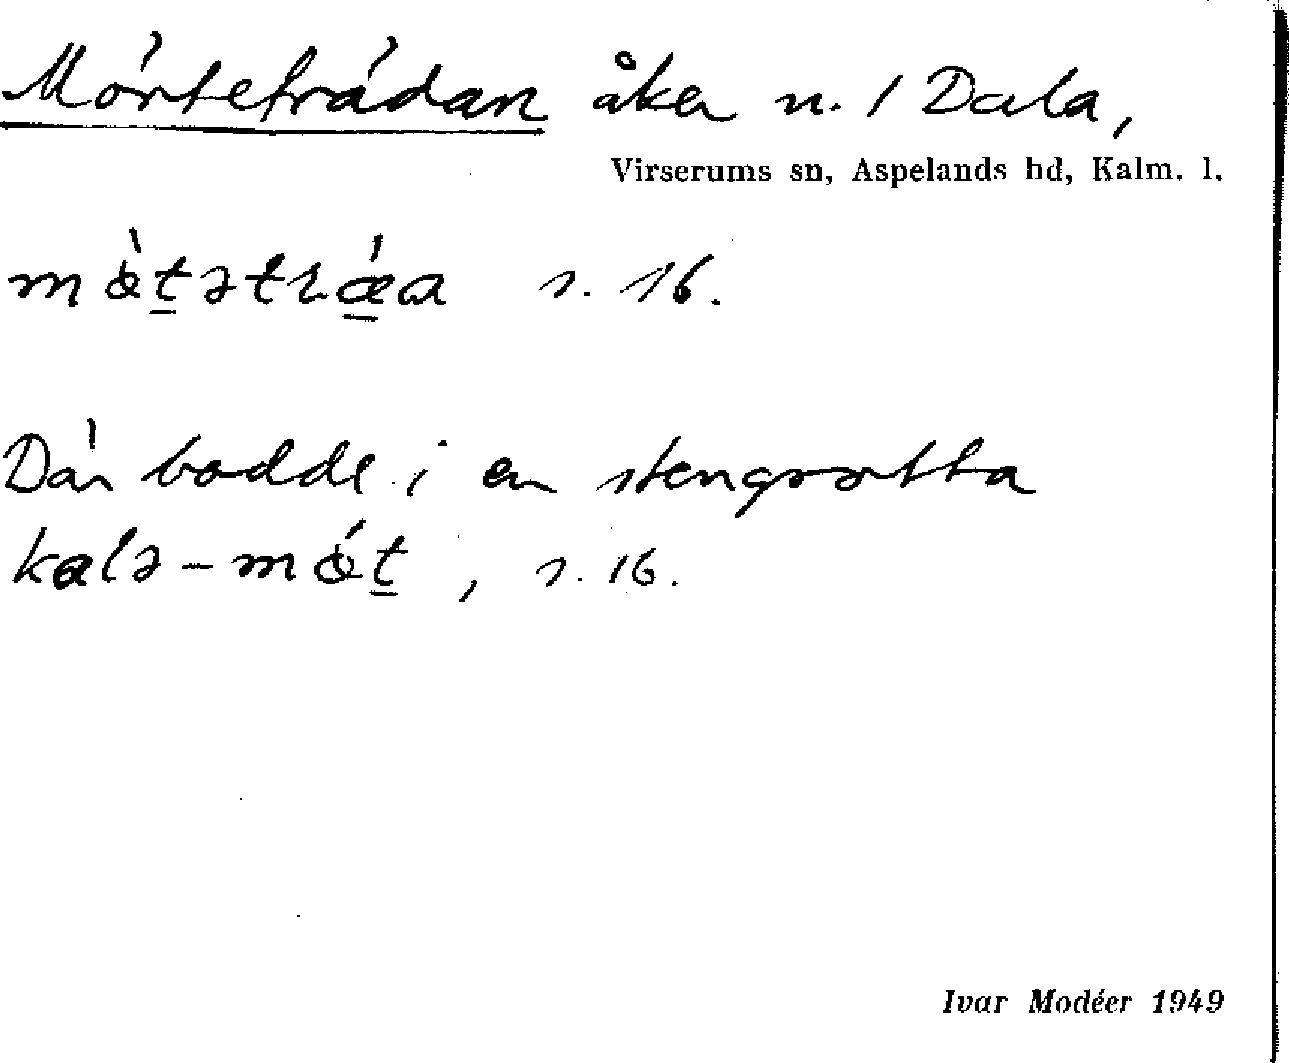 Mörteträdan åker n. / Dala,
Virserums sn, Aspelands hd, Kalm. l.
s. 16.
Där bodde i en stengrotta
s. 16.
Ivar Modéer 1949